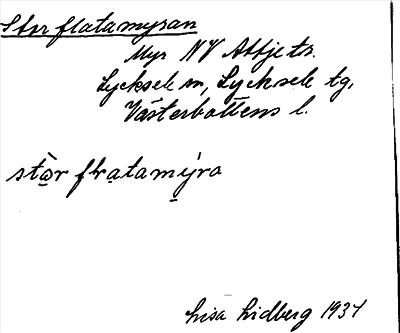 Stor flatamyran
Myr NV Abbjetr.
Lycksele sn, Lycksele tg,
Västerbottens l.
stor flatamyra
Lisa Lidberg 1937